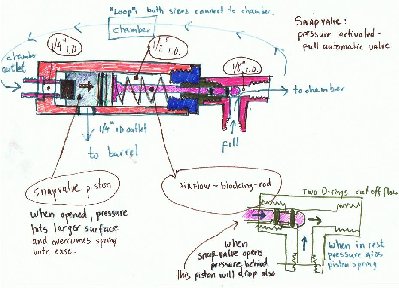 "Loop", both sizes connect to chamber.
chamber
Snapvalve:
pressure activated-
full automatic valve
1/4" I.D.
1/2" I.D.
1/4" I.D.
chamber
outlet
to chamber
1/4" ID outlet
to barrel
fill
snapvalve piston
airflow-blocking-rod
when opened, pressure
hits larger surface
and overcomes spring
with ease.
Two O-rings cut off flow
when
snap-valve opens
pressure behind
this piston will drop also
when in rest
pressure aids
piston spring